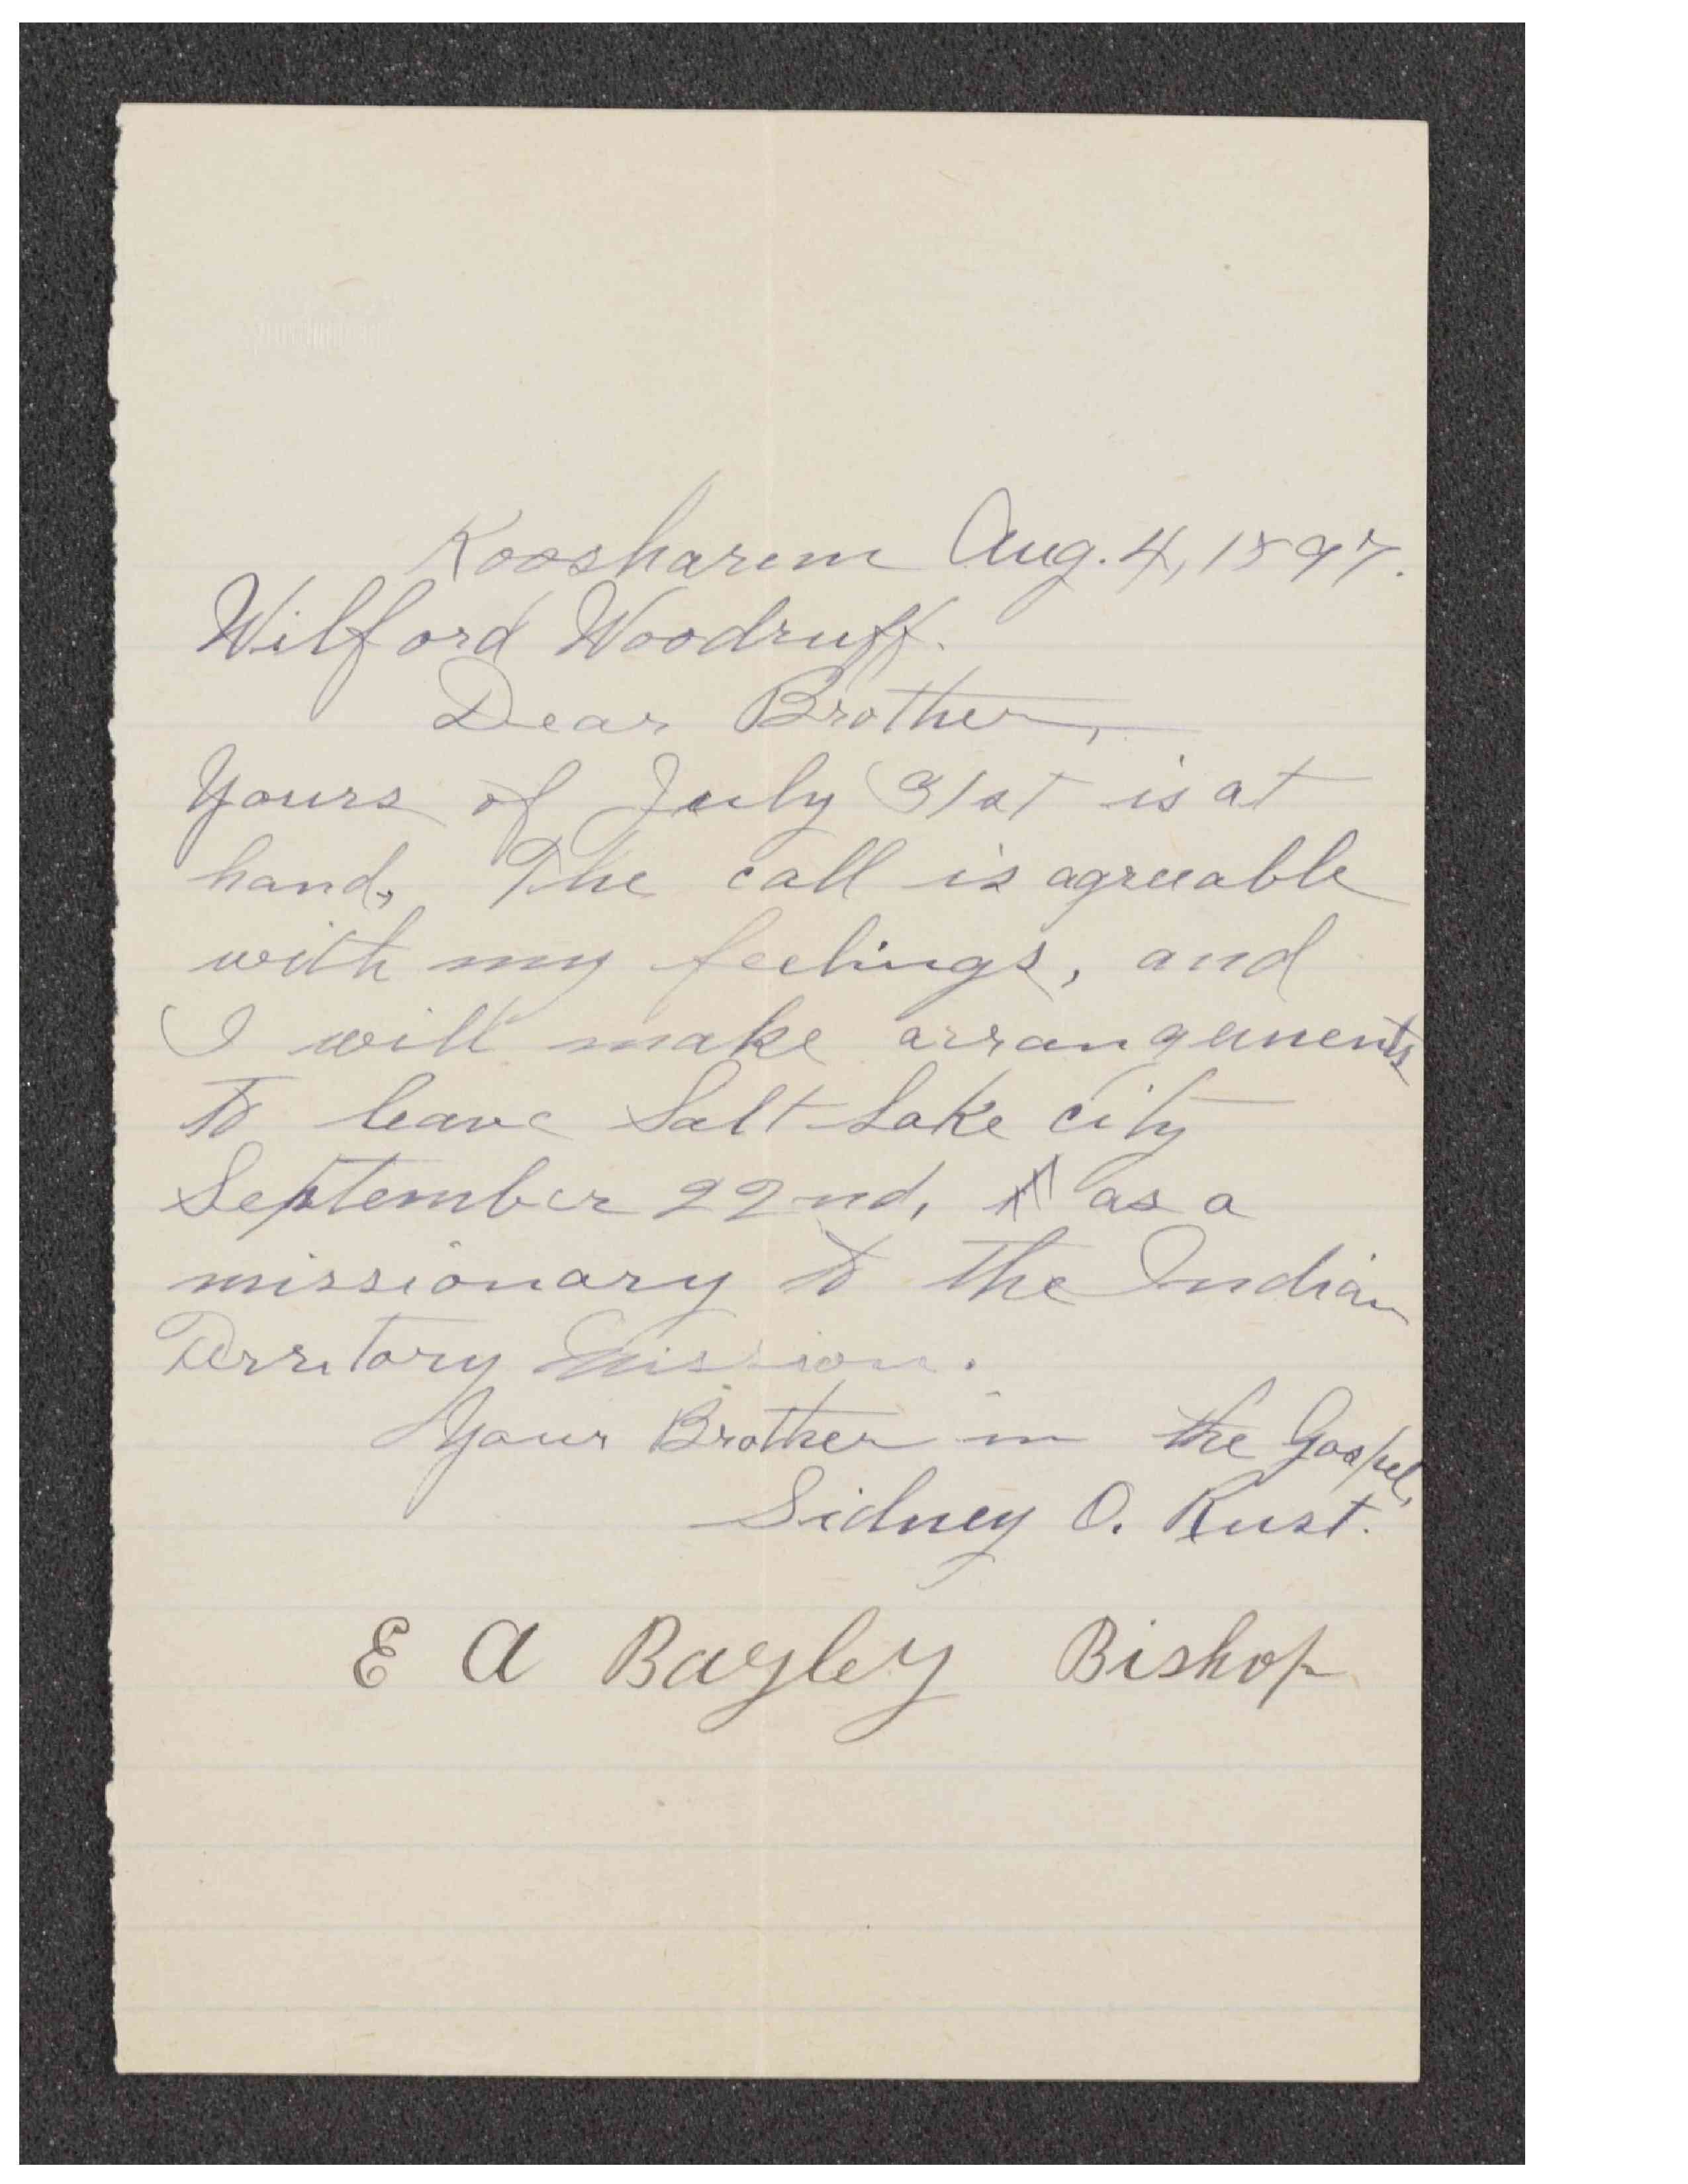 Koosharem Aug. 4, 1897.
Wilford Woodruff.
Dear Brother,
Yours of July 31st is at
hand. The call is agreeable
with my feelings, and
I will make arrangements
to leave Salt Lake city
September 22nd, as a
missionary to the Indian
Territory Mission.
Your Brother in the Gospel,
Sidney O. Rust.
E A Bagley Bishop